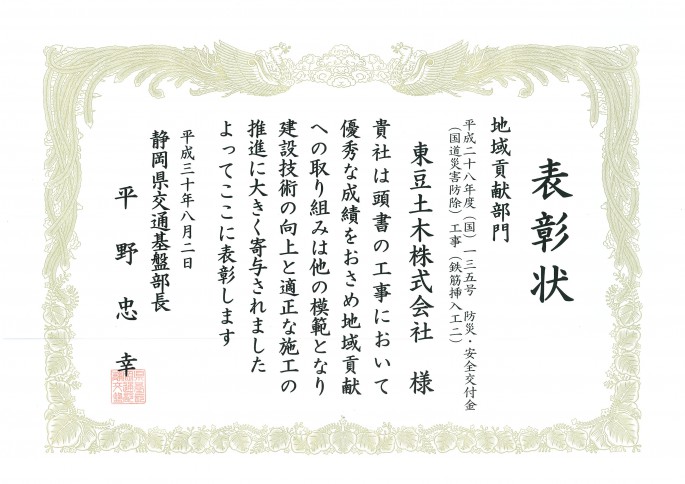 表彰状
地域貢献部門
平成二十八年度（国）一三五号 防災・安全交付金
（国道災害防除）工事（鉄筋挿入工二）
東豆土木株式会社 様
貴社は頭書の工事において
優秀な成績をおさめ地域貢献
への取り組みは他の模範となり
建設技術の向上と適正な施工の
推進に大きく寄与されました
よってここに表彰します
平成三十年八月二日
静岡県交通基盤部長
平野忠幸